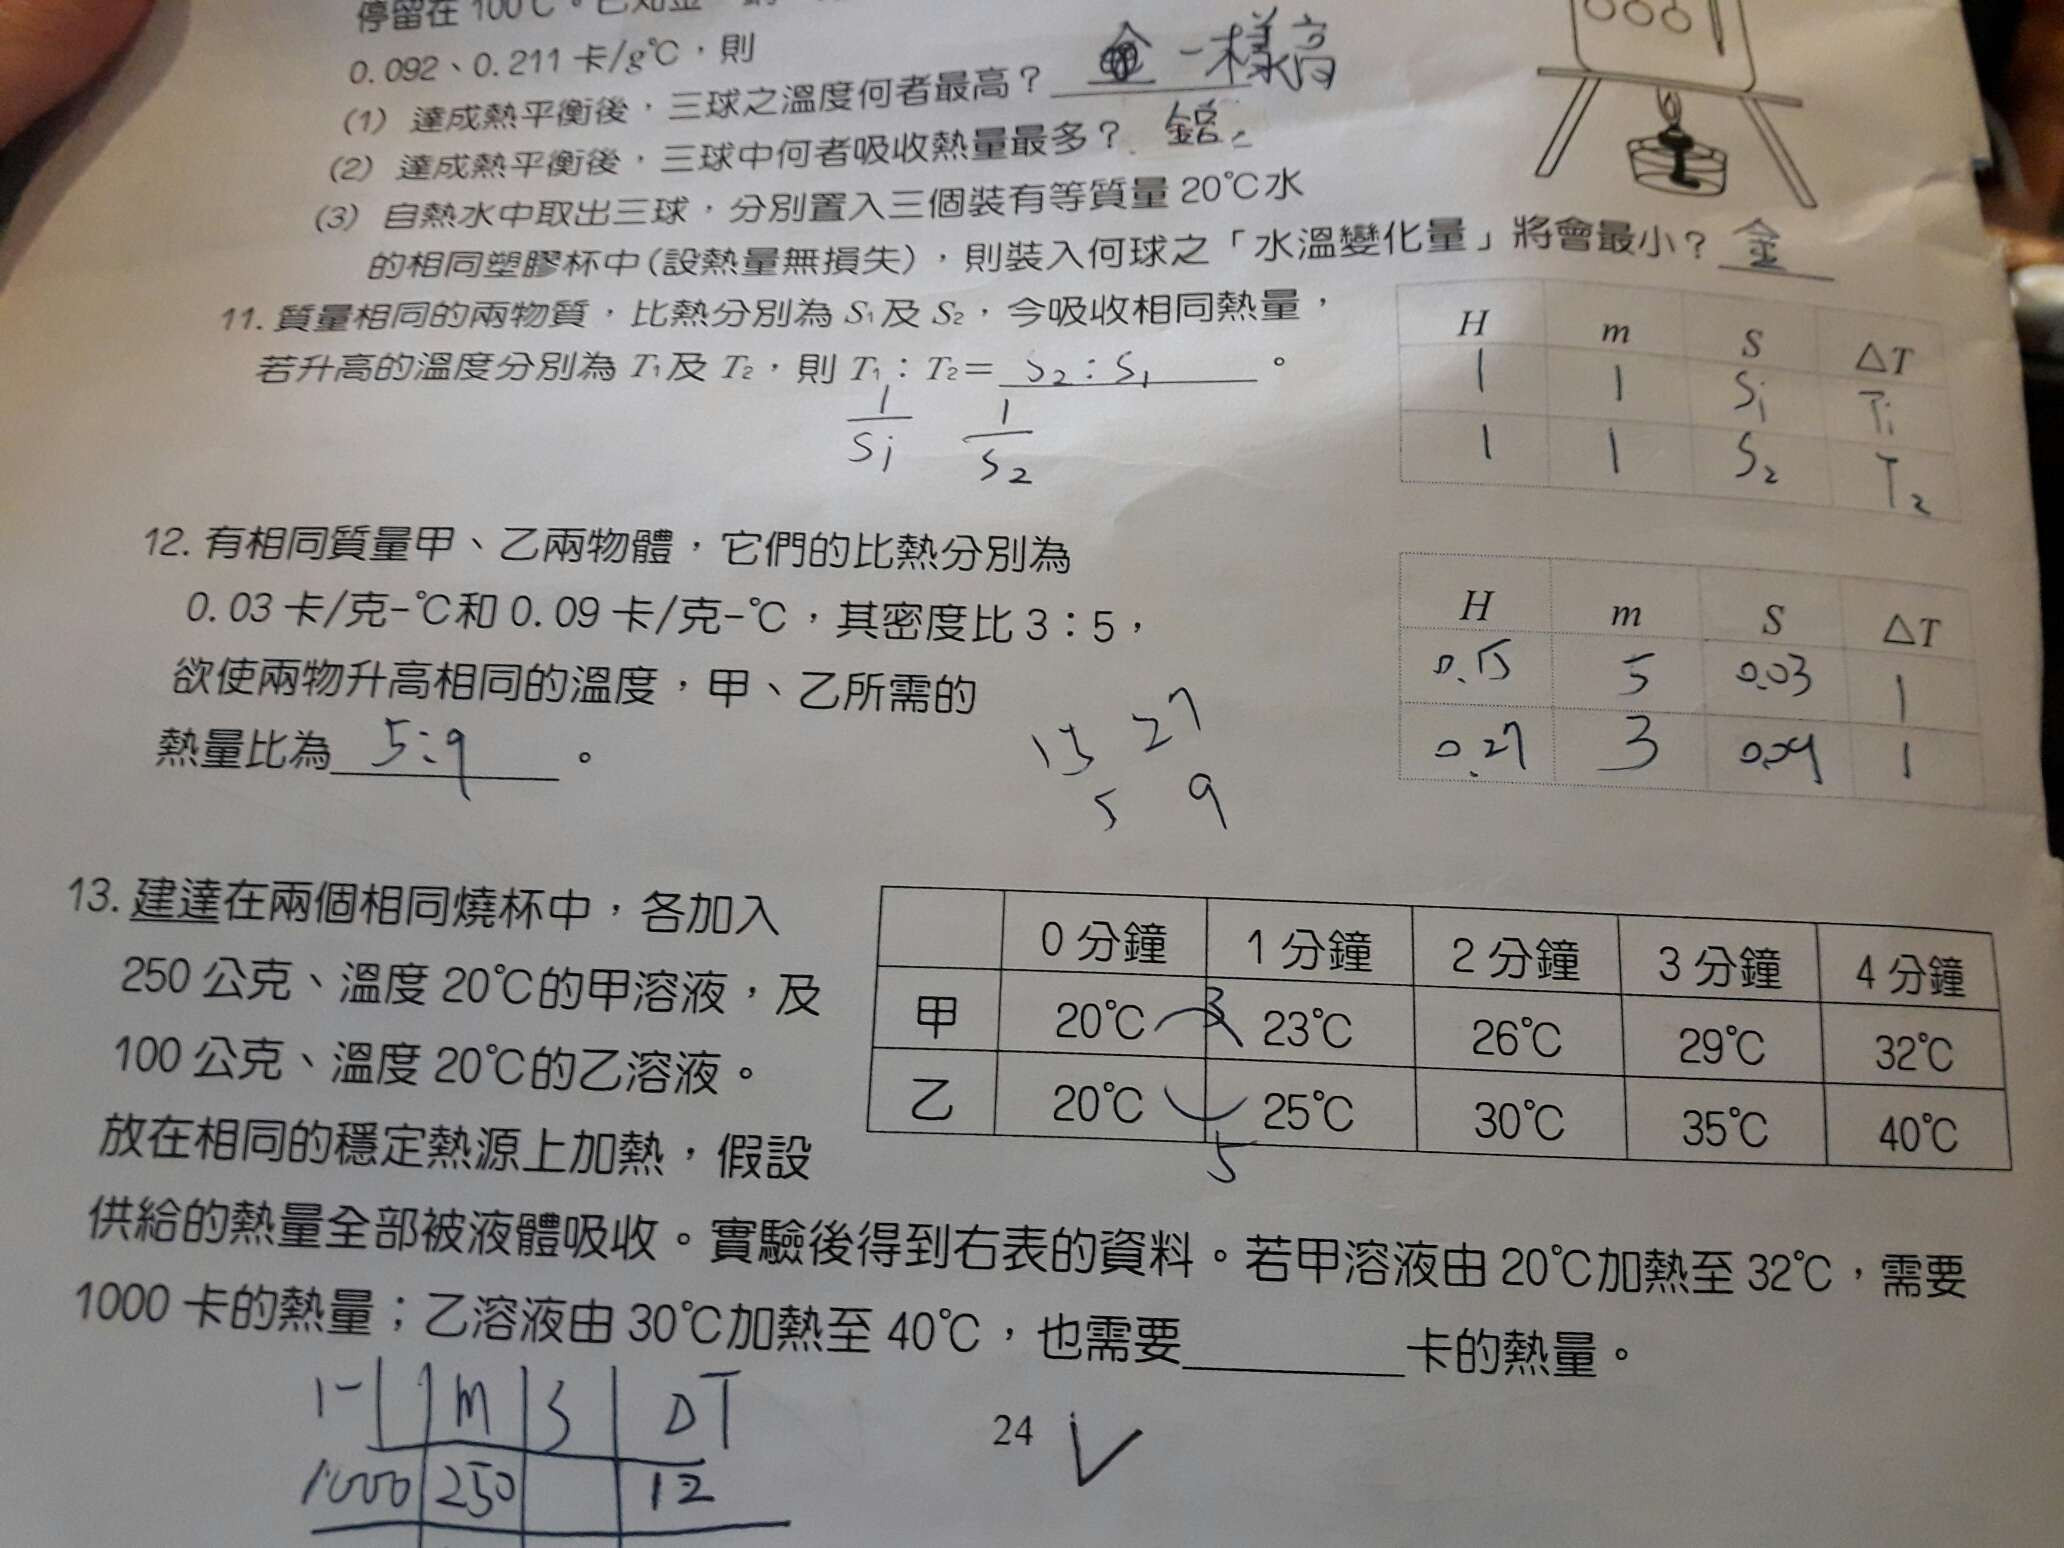 停留在100℃。已知金
0.092、0.211卡/g℃，則
(1) 達成熱平衡後，三球之溫度何者最高？ 一樣高
(2) 達成熱平衡後，三球中何者吸收熱量最多？ 鋁
(3) 自熱水中取出三球，分別置入三個裝有等質量20℃水
的相同塑膠杯中(設熱量無損失)，則裝入何球之「水溫變化量」將會最小？ 金
11. 質量相同的兩物質，比熱分別為S₁及S₂，今吸收相同熱量，
若升高的溫度分別為T₁及T₂，則T₁：T₂= S₂:S₁ 。
1/S₁ 1/S₂
H m S △T
1 1 S₁ T₁
1 1 S₂ T₂
12. 有相同質量甲、乙兩物體，它們的比熱分別為
0.03卡/克-℃和0.09卡/克-℃，其密度比3：5，
欲使兩物升高相同的溫度，甲、乙所需的
熱量比為 5:9 。
15 27
5 9
H m S △T
0.15 5 0.03 1
0.27 3 0.09 1
13. 建達在兩個相同燒杯中，各加入
250公克、溫度20℃的甲溶液，及
100公克、溫度20℃的乙溶液。
放在相同的穩定熱源上加熱，假設
供給的熱量全部被液體吸收。實驗後得到右表的資料。若甲溶液由20℃加熱至32℃，需要
1000卡的熱量；乙溶液由30℃加熱至40℃，也需要 卡的熱量。
0分鐘 1分鐘 2分鐘 3分鐘 4分鐘
甲 20℃ 3 23℃ 26℃ 29℃ 32℃
乙 20℃ 25℃ 30℃ 35℃ 40℃
5
H M S △T
1000 250 12
24